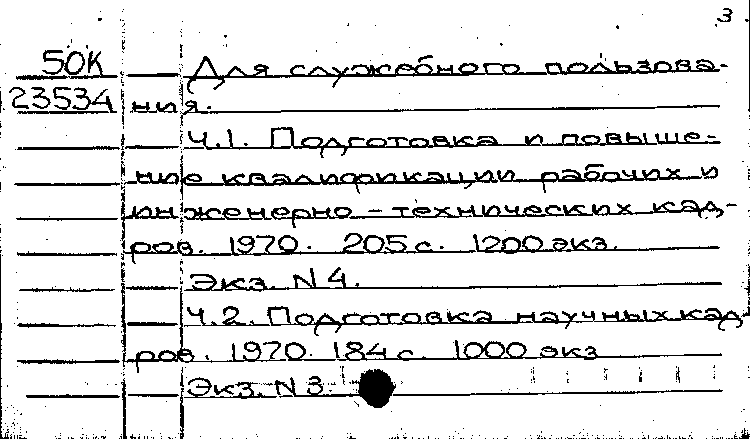 3
50К Для служебного пользова-
23534 ния.
Ч.1. Подготовка и повыше-
ние квалификации рабочих и
инженерно-технических кад-
ров. 1970. 205 с. 1200 экз.
Экз. N 4.
Ч.2. Подготовка научных кад-
ров. 1970. 184 с. 1000 экз
Экз. N 3.